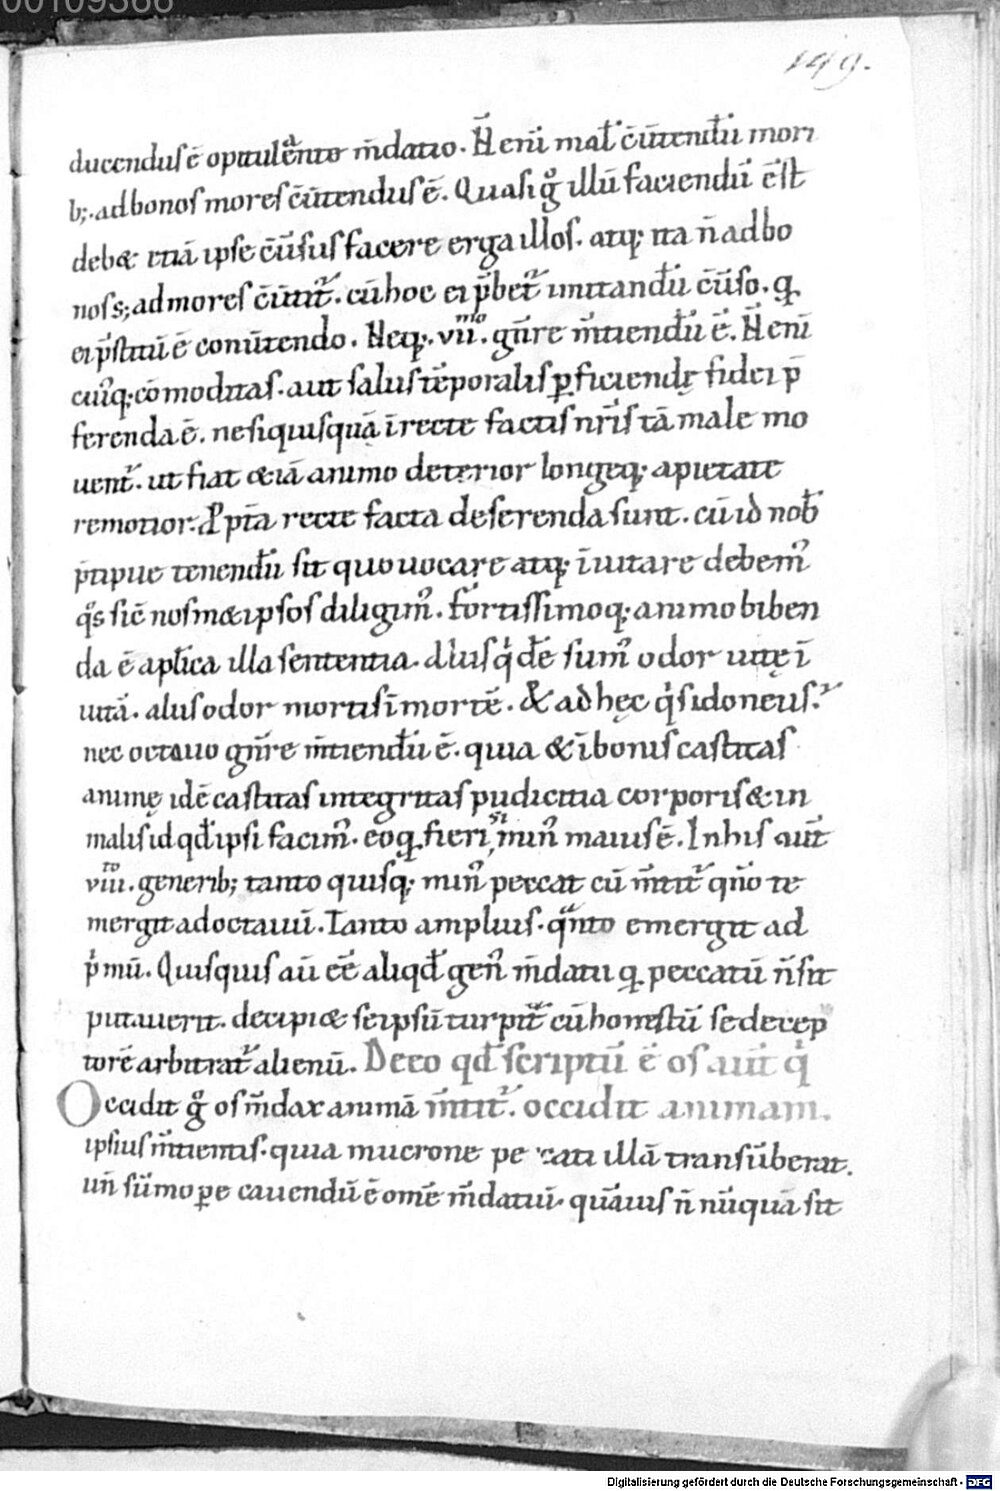 00109388
149.
ducendus ē opitulᵃento m̄datio. N̄ eni mal̄ c̄ūtendū mori
b;. ad bonos mores c̄ūtendus ē. Quasi g̊ illū faciendū ē. st
deb& etiā ipse c̄ūsus facere erga illos. atq; ita n̄ ad bo
nos s; ad mores c̄ūtit᷑. cū hoc ei p̄bet᷑ imitandū c̄ūso. q
ei p̄stitū ē conūtendo. Neq;. vii.ᵐᵒ gn̄re m̄tiendū ē. N̄ eni
cui᷒q; cōmoditas. aut salus tēporalis ꝑficiendę fidei p̄
ferenda ē. ne siquisquā ī recte factis nr̄is tā male mo
uent᷑. ut fiat &iā animo deterior longeq; a pietate
remotior. Ꝓpt̄a recte facta deserenda sunt. cū id nob̄
p̄cipue tenendū sit quo uocare atq; īuitare debem᷒
q̊s sic̄ nosm&ipsos diligim᷒. fortissimoq; animo biben
da ē apl̄ica illa sententia. aliis qͥdē sum᷒ odor uitę ī
uitā. aliis odor mortis ī mortē. & ad hęc qͥs idoneus.᷑
nec octauo gn̄re m̄tiendū ē. quia & ī bonis castitas
animę idē castitas integritas pudicitia corporis & in
malis id qd̄ ipsi facim᷒. eo q fieri ˢⁱ, min᷒ maius ē. In his aūt
viii.ᵗᵒ generib; tanto quisq; min᷒ peccat cū m̄tit᷑ qn̊o te
mergit ad octauū. Tanto amplius. qᵃnto emergit ad
pͥmū. Quisquis aū ēē aliqd̄ gen᷒ m̄datii q peccatū n̄ sit
putauerit. decipi& se ipsū turpit᷑ cū honestū se decep
torē arbitrat᷑ alienū. De eo qd̄ scriptū ē os aūt qͥ
Occidit g̊ os m̄dax animā m̄tit᷑. occidit animam.
ipsius m̄tientis. quia mucrone pe cati illā transūberat.
uń sūmope cauendū ē omē m̄datiū. quāuis n̄ nūquā sit
Digitalisierung gefördert durch die Deutsche Forschungsgemeinschaft - DFG